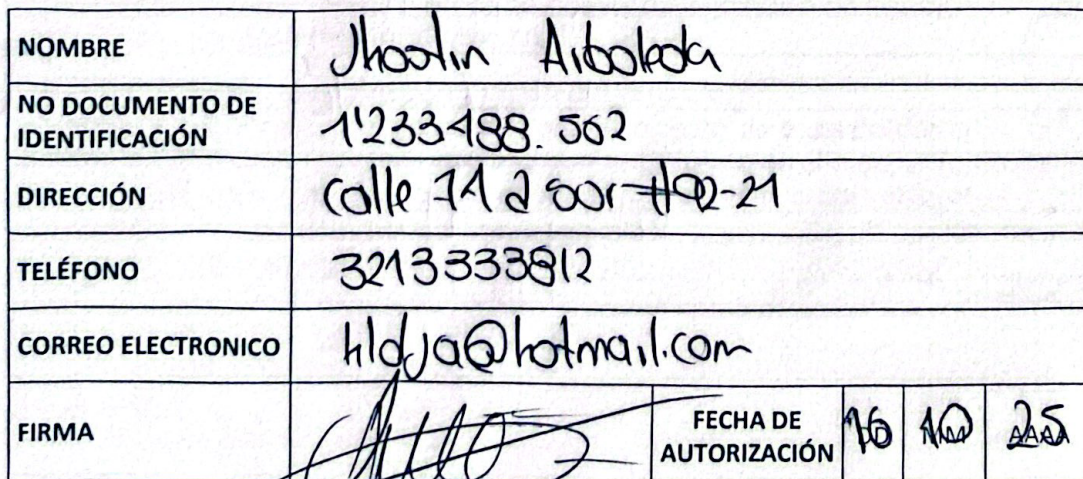 NOMBRE Jhostin Arboleda
NO DOCUMENTO DE
IDENTIFICACIÓN 1'233 488. 562
DIRECCIÓN calle 71 a sur # 92-21
TELÉFONO 3213333812
CORREO ELECTRONICO @hotmail.com
FIRMA FECHA DE
AUTORIZACIÓN 16 10 25